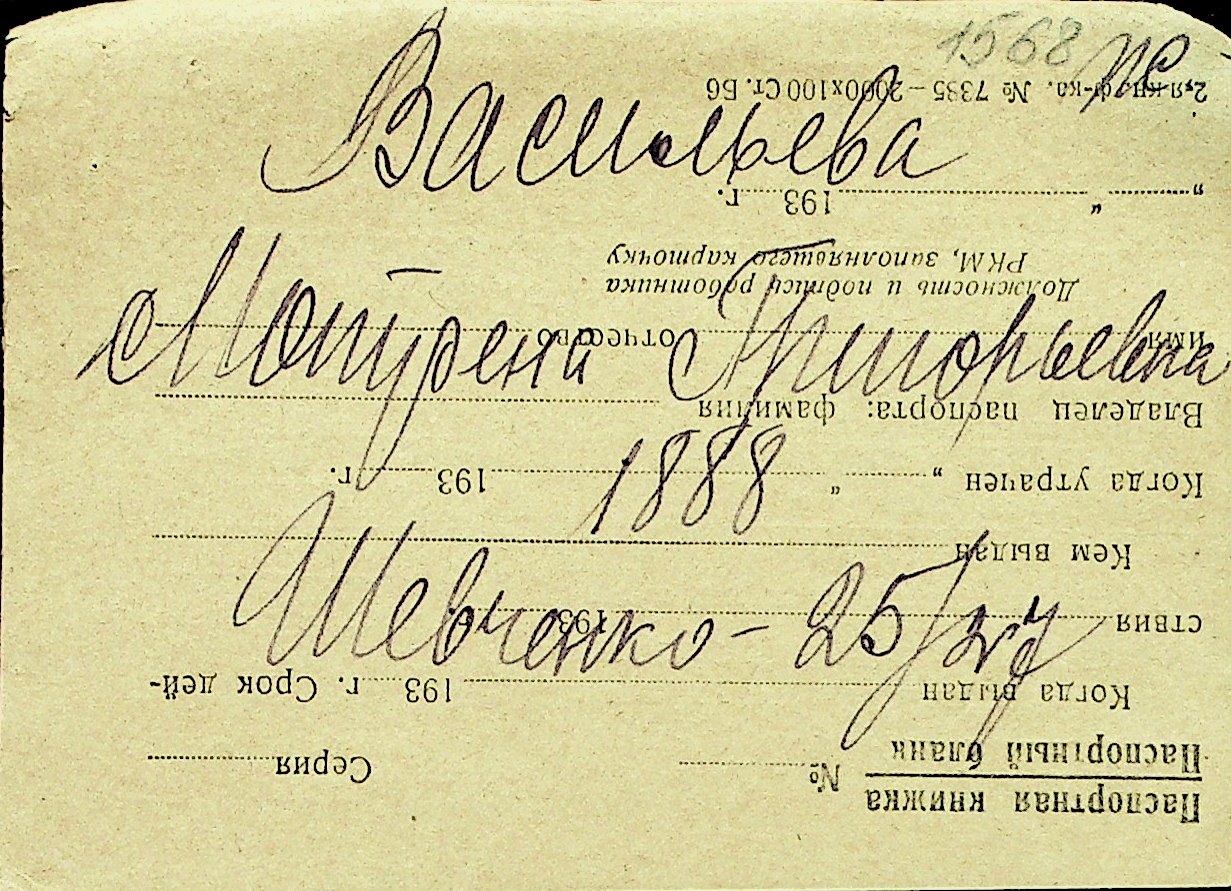 1568
Васильева
Мотрена Григорьевна
1888
Шевченко - 25/27
Паспортная книжка
Паспортный бланк
№ Серия
Когда выдан 193 г. Срок дей-
ствия 193
Кем выдан
Когда утрачен „ “ 193 г.
Владелец паспорта: фамилия
имя отчество
Должность и подпись работника
РКМ, заполнявшего карточку
„ “ 193 г.
2-я кн. ф-ка. № 7385 — 2000х100 Ст. Б6